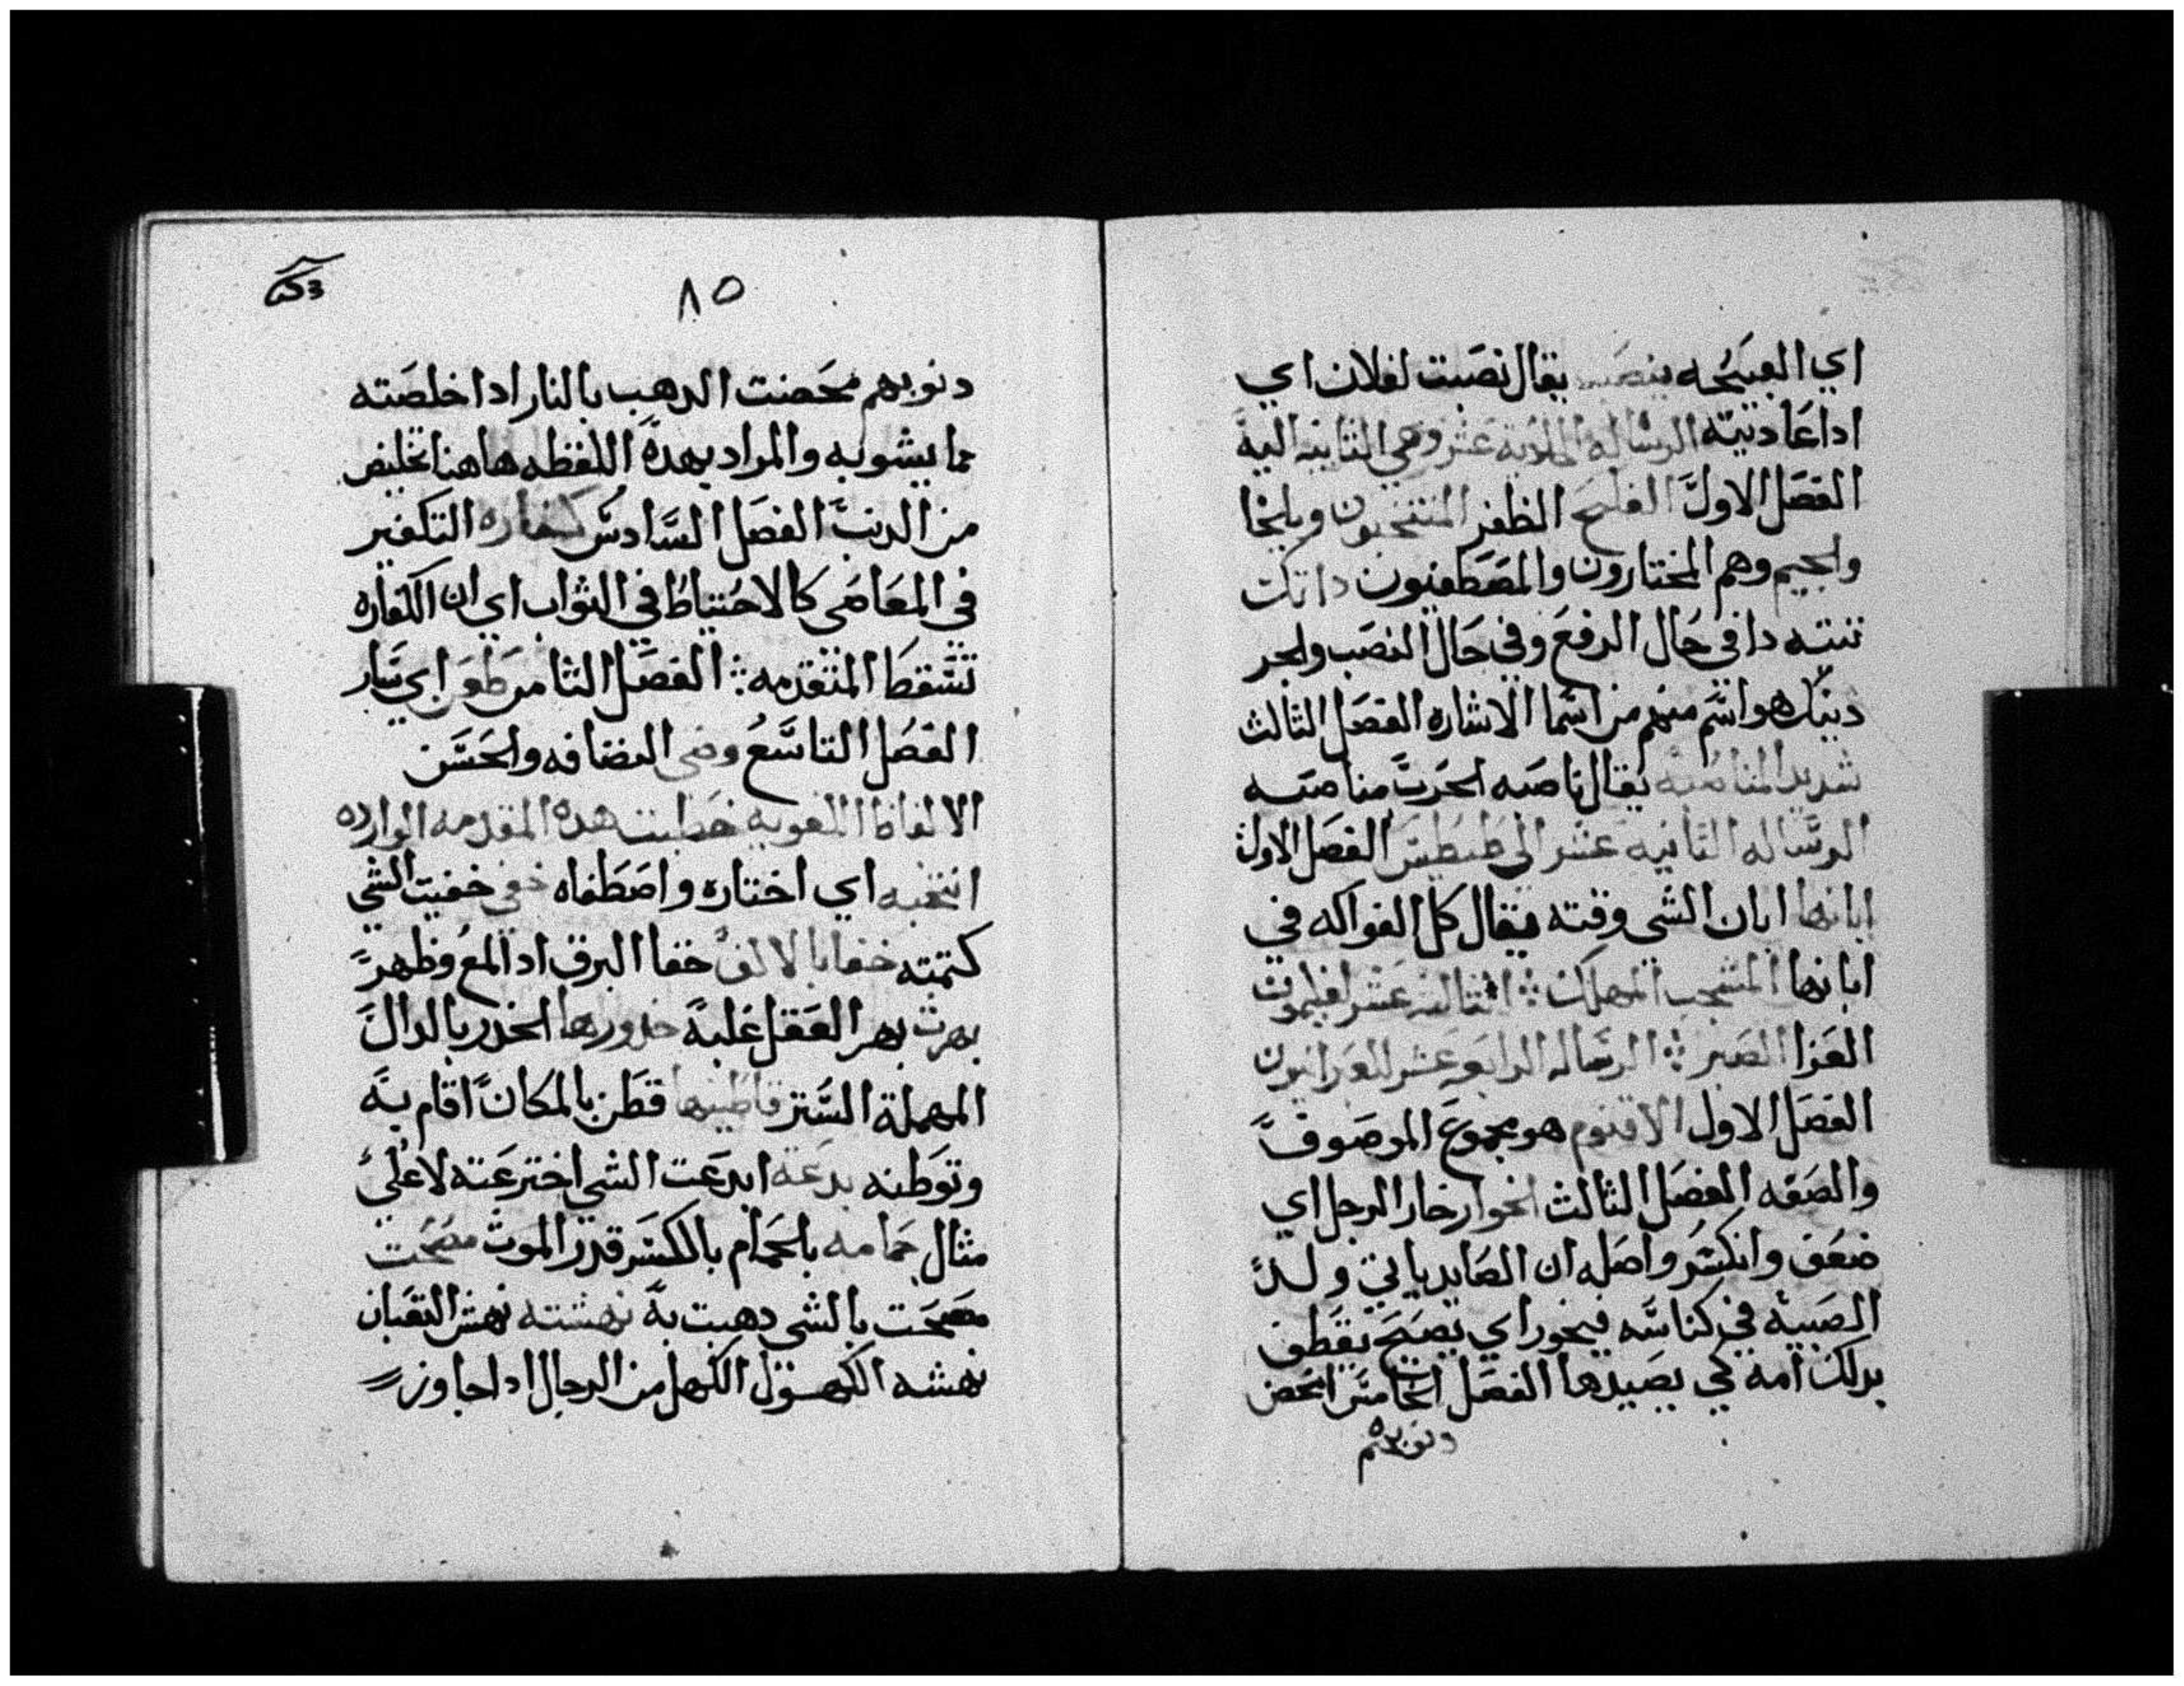 اي القبيحه ينصب يقال نصبت لفلان اي
اداعاديته الرساله الحاديه عشر وهي الثانيه اليه
الفصل الاول الفلح الظفر المنتخبون وبالخا
والجيم وهم المختارون والمصطفيون داتك
تتنيه دا في حال الرفع وفي حال النصب والجر
دينك هو اسم مبهم من اسما الاشاره الفصل الثالث
شديد المناصبه يقال ناصبه الحرب مناصبه
الرساله الثانيه عشر الى طيطس الفصل الاول
ابانها ابان الشي وقته يقال كل الفواكه في
ابانها المشجب المهلك الثالثه عشر لفليمون
العزا الصبر الرساله الرابعه عشر للعبرانيون
الفصل الاول الاقنوم هو مجموع الموصوف
والصفه الفصل الثالث الخوار خار الرجل اي
ضعف وانكسر واصله ان الصايد ياتي ولد
الصبيه في كناسه فيخور اي يصيح يقطف
بدلك امه كي يصيدها الفصل الخامس امحض
دنوبهم
٨٥
دنوبهم محضت الدهب بالنار ادا خلصته
مما يشوبه والمراد بهده اللفظه هاهنا تخليص
من الدنب الفصل السادس كفاره التكفير
في المعاصي كالاحتباط في الثواب اي ان الكفاره
تسقط المتقدمه الفصل الثامن طفق اي سار
الفصل التاسع وضى النضافه والحسن
الالفاظ اللغويه خطبت هده المقدمه الوارده
انتخبه اي اختاره واصطفاه خفي خفيت الشي
كتمته خفا بالالف خفا البرق ادا لمع وظهر
بهرت بهر العقل غلبه خدورها الخدر بالدال
المهملة الستر قاطنيها قطن بالمكان اقام به
وتوطنه بدعة ابدعت الشي اخترعته لا على
مثال حمامه بالحمام بالكسر قدر الموت مضحت
مضحت بالشي دهبت به نهشته نهش التعبان
نهشه الكهول الكهل من الرجال ادا جاوز